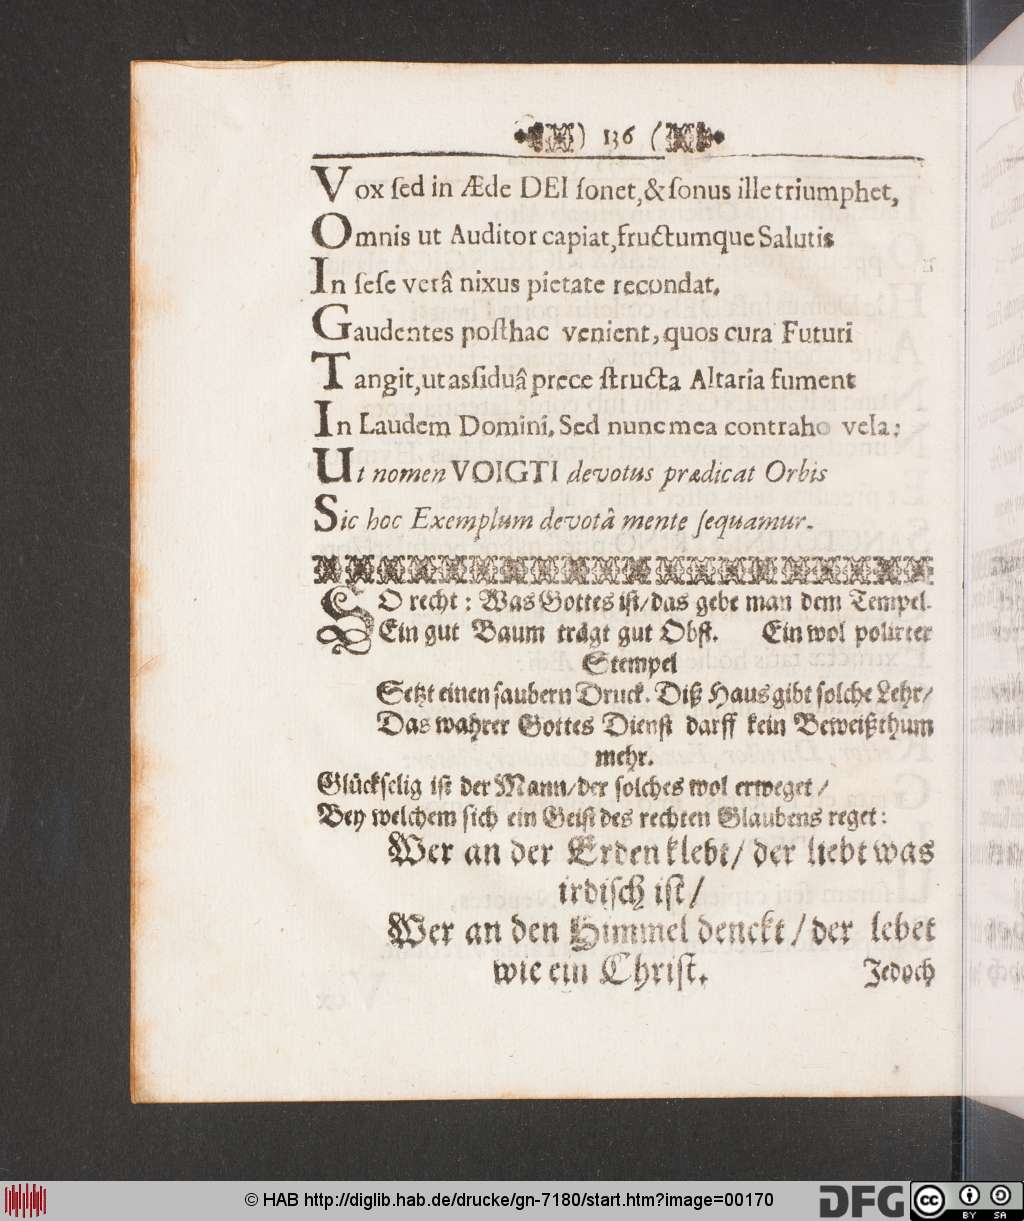 ) 136 (
Vox ſed in Æde DEI ſonet, & ſonus ille triumphet,
Omnis ut Auditor capiat, fructumque Salutis
In ſeſe verâ nixus pietate recondat.
Gaudentes poſthac venient, quos cura Futuri
Tangit, ut asſiduâ prece ſtructa Altaria fument
In Laudem Domini. Sed nunc mea contraho vela:
Ut nomen VOIGTI devotus prædicat Orbis
Sic hoc Exemplum devotâ mente ſequamur.
SO recht: Was Gottes iſt/ das gebe man dem Tempel.
Ein gut Baum trägt gut Obſt. Ein wol polirter
Stempel
Setzt einen ſaubern Druck. Diß Haus gibt ſolche Lehr/
Das wahrer Gottes Dienſt darff kein Beweißthum
mehr.
Glückſelig iſt der Mann/ der ſolches wol erweget/
Bey welchem ſich ein Geiſt des rechten Glaubens reget:
Wer an der Erden klebt/ der liebt was
irdiſch iſt/
Wer an den Himmel denckt/ der lebet
wie ein Chriſt. Jedoch
© HAB http://diglib.hab.de/drucke/gn-7180/start.htm?image=00170
DFG
cc BY SA